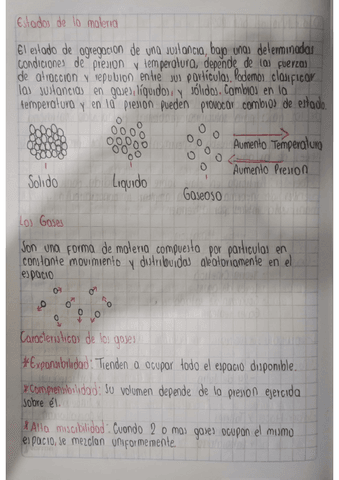 Estados de la materia
El estado de agregacion de una sustancia, bajo unas determinadas
condiciones de presion y temperatura, depende de las fuerzas
de atraccion y repulsion entre sus particulas. Podemos clasificar
las sustancias en gases, liquidos, y sólidos. Cambios en la
temperatura y en la presion pueden provocar cambios de estado
Aumento Temperatura
Aumento Presion
Solido
Liquido
Gaseoso
Los Gases
Son una forma de materia compuesta por particulas en
constante movimiento y distribuidas aleatoriamente en el
espacio
Caracteristicas de los gases
*Expansibilidad: Tienden a ocupar todo el espacio disponible.
*Compresibilidad: Su volumen depende de la presion ejercida
sobre él.
*Alta miscibilidad: Cuando 2 o mas gases ocupan el mismo
espacio, se mezclan uniformemente.